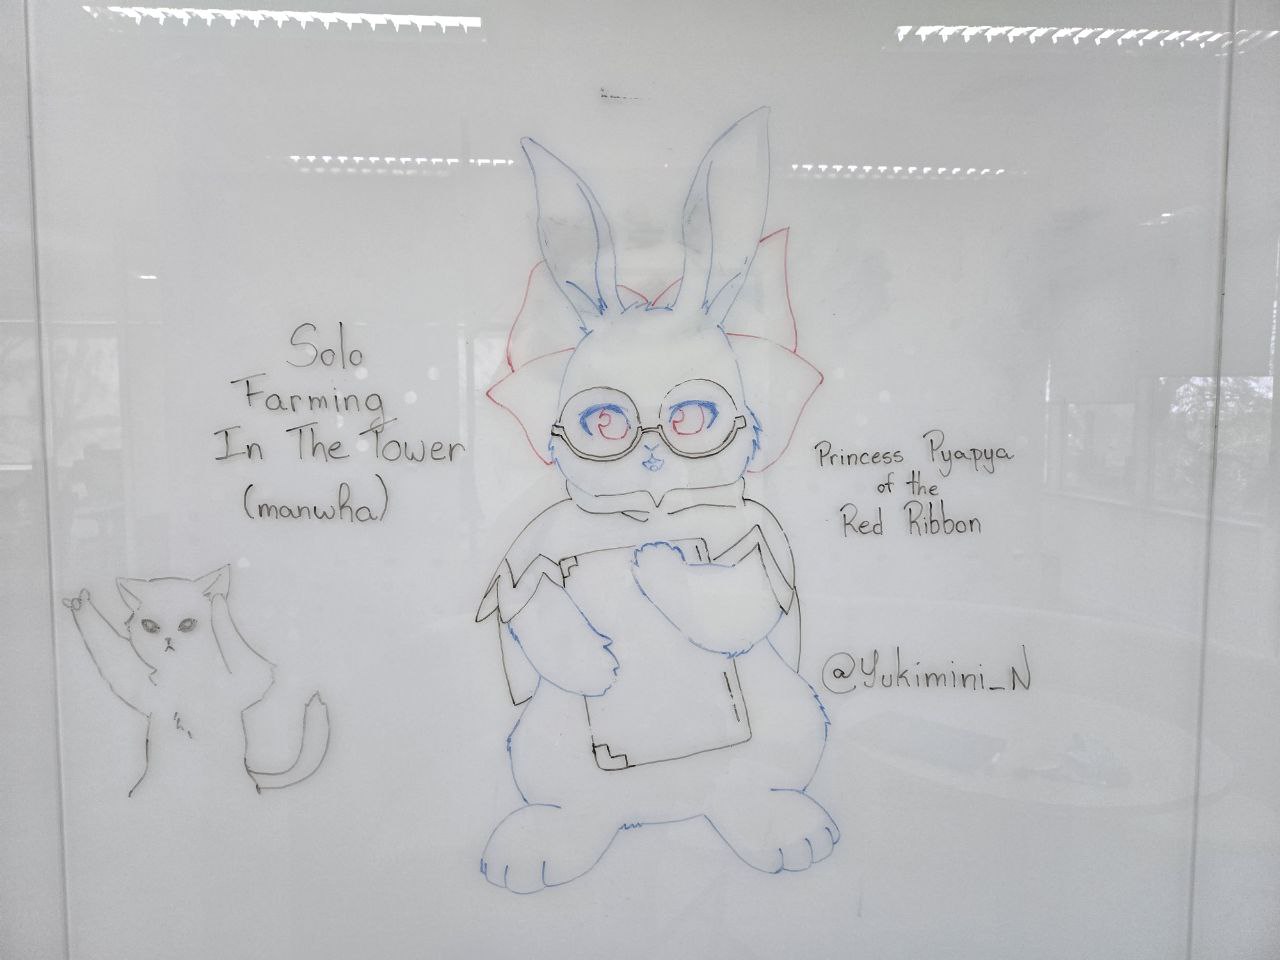 Solo
Farming
In The Tower
(manwha)
Princess Pyapya
of the
Red Ribbon
@Yukimini_N